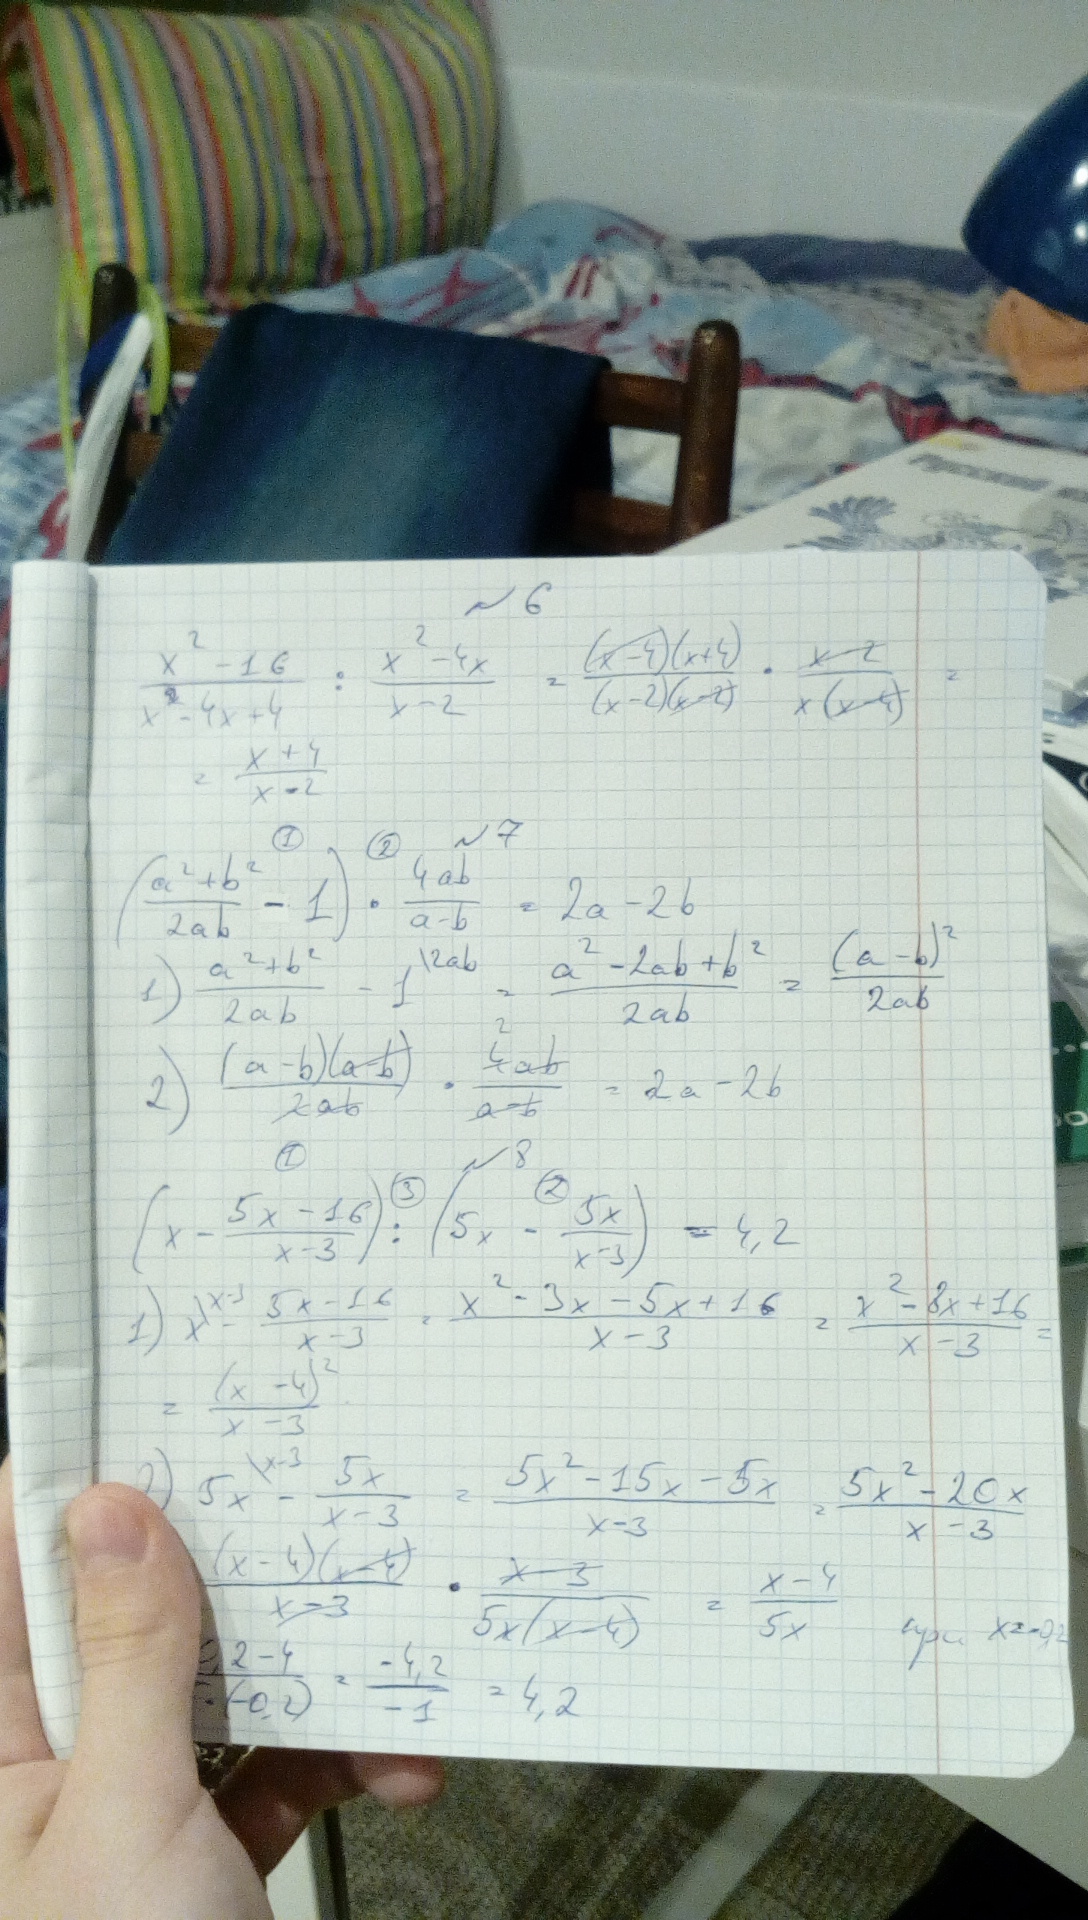 Русский
№ 6
(x² - 16)/(x² - 4x + 4) : (x² - 4x)/(x - 2) = ((x - 4)(x + 4))/((x - 2)(x - 2)) · (x - 2)/(x(x - 4)) =
= (x + 4)/(x - 2)
① ② № 7
((a² + b²)/(2ab) - 1) · (4ab)/(a - b) = 2a - 2b
1) (a² + b²)/(2ab) - 1\2ab = (a² - 2ab + b²)/(2ab) = (a - b)²/(2ab)
2) ((a - b)(a - b))/(2ab) · (4ab)/(a - b) 2 = 2a - 2b
① № 8
③ ②
(x - (5x - 16)/(x - 3)) : (5x - (5x)/(x - 3)) = 4,2
1) x\x-3 - (5x - 16)/(x - 3) = (x² - 3x - 5x + 16)/(x - 3) = (x² - 8x + 16)/(x - 3) =
= (x - 4)²/(x - 3)
2) 5x\x-3 - (5x)/(x - 3) = (5x² - 15x - 5x)/(x - 3) = (5x² - 20x)/(x - 3)
((x - 4)(x - 4))/(x - 3) · (x - 3)/(5x(x - 4)) = (x - 4)/(5x) при x = -0,2
(,2 - 4)/(· (-0,2)) = (-4,2)/(-1) = 4,2